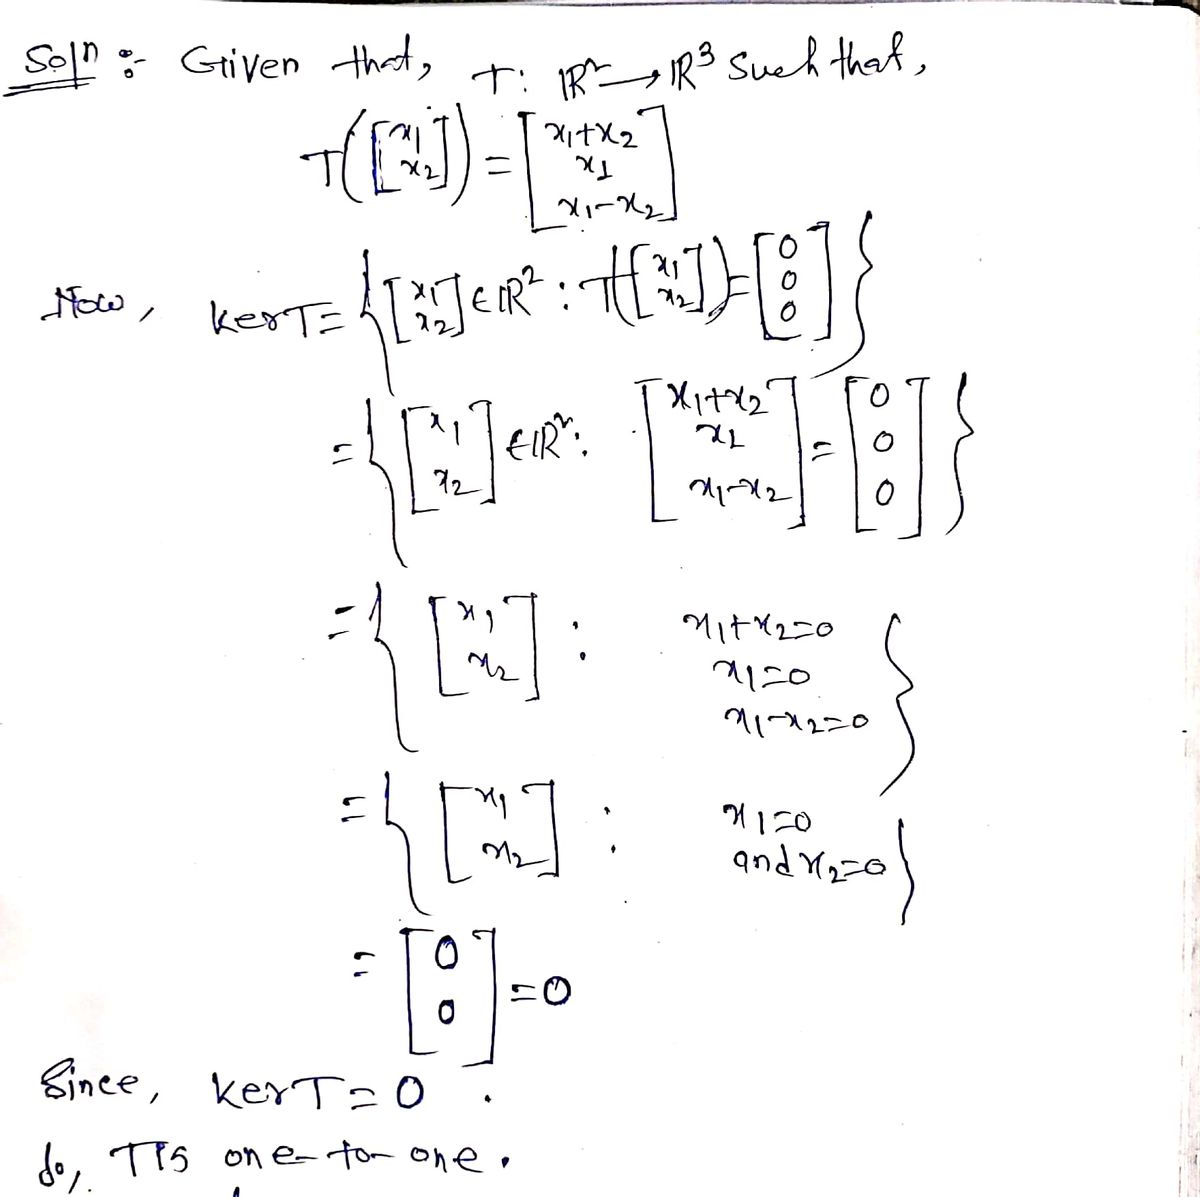 Soln :- Given that, T: ℝ² → ℝ³ Such that,
T([x₁ x₂]) = [x₁+x₂ x₁ x₁-x₂]
Now, kerT = {[x₁ x₂] ∈ ℝ² : T([x₁ x₂]) = [0 0 0]}
= {[x₁ x₂] ∈ ℝ² : [x₁+x₂ x₁ x₁-x₂] = [0 0 0]}
= {[x₁ x₂] : x₁+x₂=0 x₁=0 x₁-x₂=0}
= {[x₁ x₂] : x₁=0 and x₂=0}
= [0 0] = 0
Since, kerT = 0 .
So, T is one-to-one.